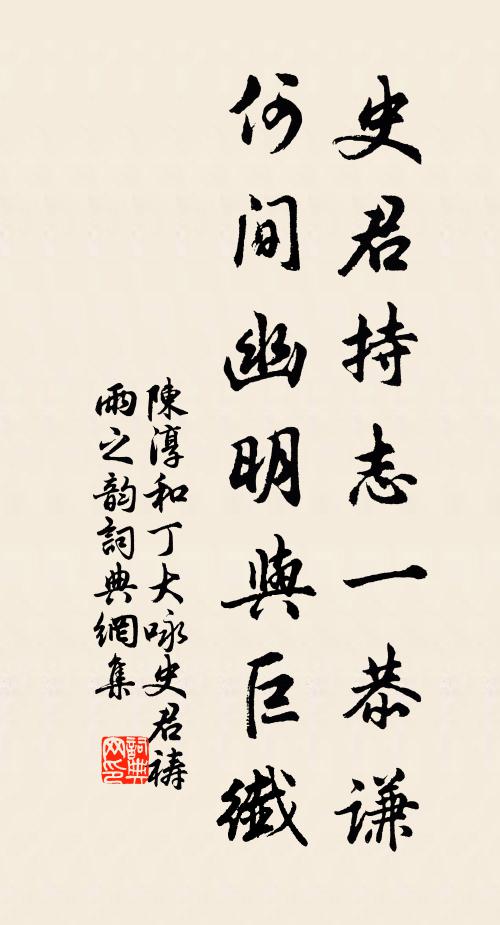 史君持志一恭谦
何间幽明與巨纖
陳淳和丁大咏史君祷
雨之韵詞典網集
詞典
网印